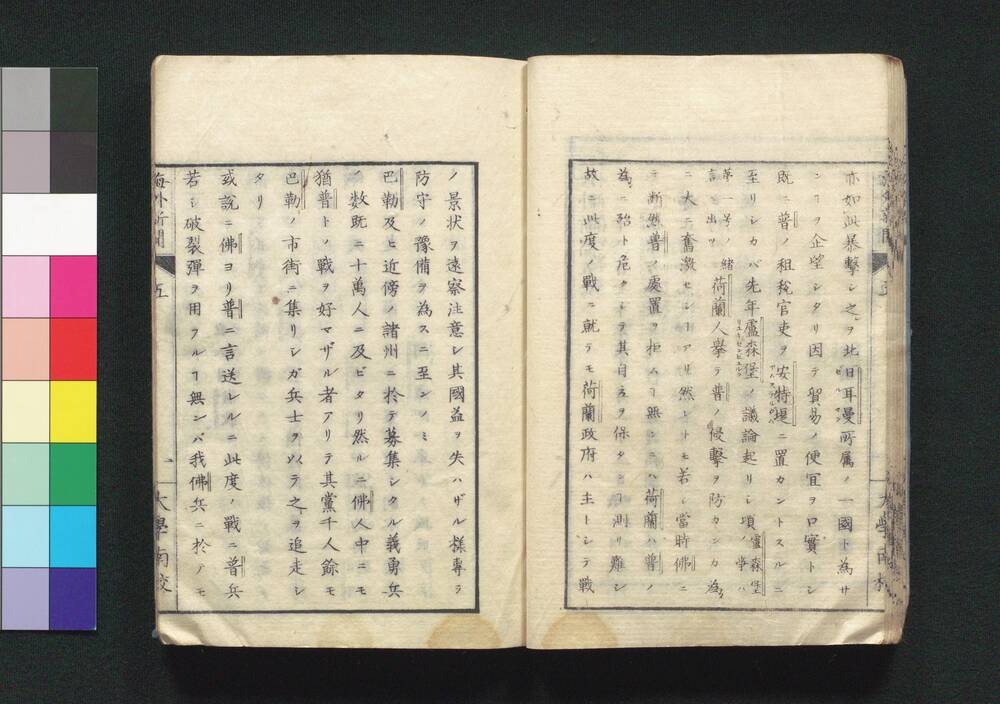 亦如此暴擊シ之ヲ北日耳曼所属ノ一國ト為サ
ンコヲ企望シタリ因テ貿易ノ便宜ヲ口實トシ
既ニ普ノ租稅官吏ヲ安特堤ニ置カントスルニ
至リシカバ先年盧森堡ノ議論起リシ頃盧森堡ノ事ハ
第一号ノ緒言ニ出ツ荷蘭人擧テ普ノ侵擊ヲ防カンカ為メ
ニ大ニ奮激セシコアリ然レトモ若シ當時佛ニ
テ断然普ノ處置ヲ拒ムコ無ンニハ荷蘭ハ普ノ
為ニ殆ト危クシテ其自立ヲ保タンコ測リ難シ
故ニ此度ノ戰ニ就テモ荷蘭政府ハ主トシテ戰
大學南校
ノ景状ヲ遠察注意シ其國益ヲ失ハザル様専ラ
防守ノ豫備ヲ為スニ至ンノミ
巴勒及ヒ近傍ノ諸州ニ於テ募集シタル義勇兵
ノ數既ニ十萬人ニ及ビタリ然ルニ佛人中ニモ
猶普トノ戰ヲ好マザル者アリテ其黨千人餘モ
巴勒ノ市街ニ集リシガ兵士ヲ以テ之ヲ追走シ
タリ
或説ニ佛ヨリ普ニ言送レルニ此度ノ戰ニ普兵
若シ破裂彈ヲ用ヲルコ無ンバ我佛兵ニ於テモ
海外新聞 五 大學南校